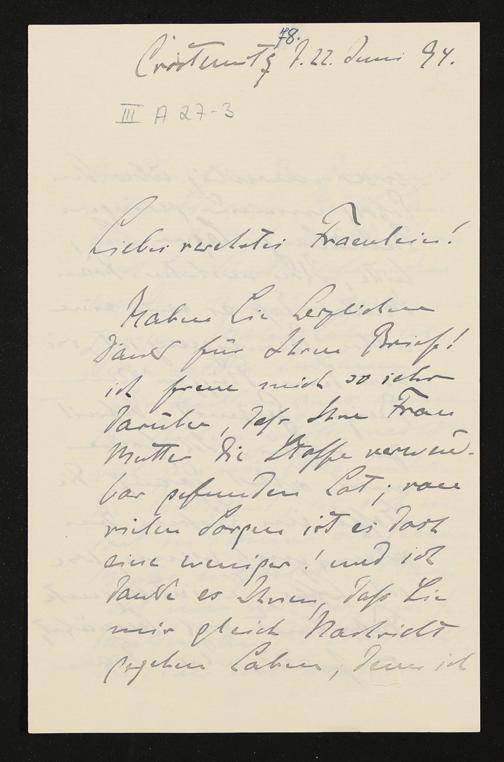 78.
d. 22. Juni 94.
III A 27-3
Liebes verehrtes Fraeulein!
Haben Sie herzlichen
Dank für Ihren Brief!
ich freue mich so sehr
darüber, dass Ihre Frau
Mutter die Stoffe verwend-
bar gefunden hat; von
vielen Sorgen ist es doch
eine weniger! und ich
danke es Ihnen, dass Sie
mir gleich Nachricht
gegeben haben, denn ich